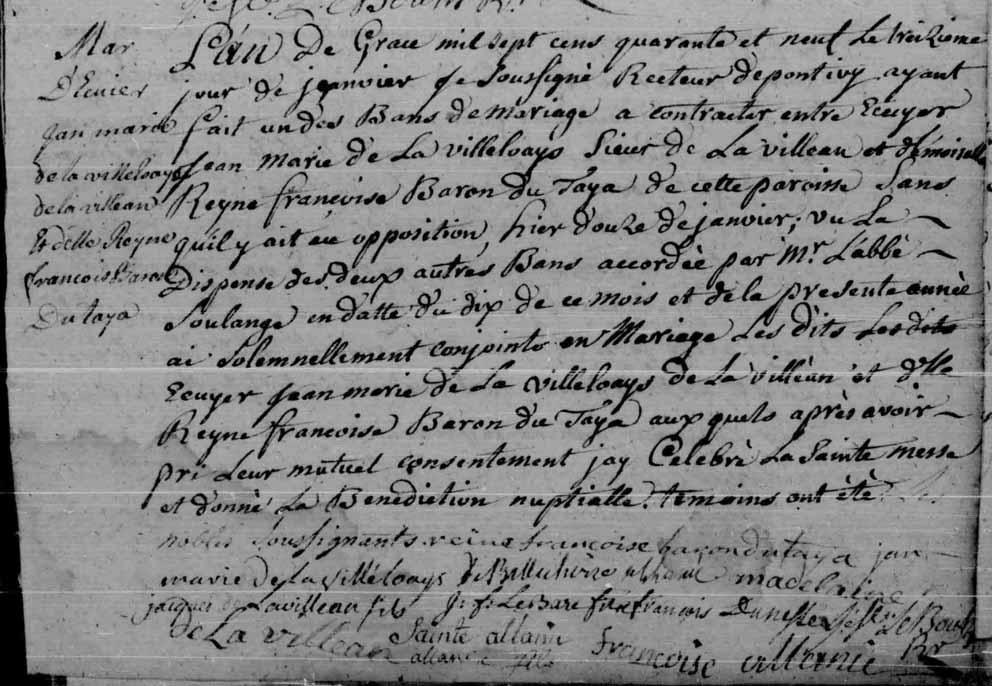 Mar
D'Ecuier
Jan marie
de la villeloays
de la villean
Et delle Reyne
francois Baron
Du taya
L'an De Grace mil sept cens quarante et neuf Le treizieme
jour de jeanvier Je Soussigné Recteur de pontivy ayant
fait un des Bans de mariage a contracter entre Ecuyer
Jean Marie de La villeloays Sieur de La villean et demoiselle
Reyne françoise Baron du Taya de cette paroisse Sans
quil y ait eu opposition, hier douze de janvier, vu La
Dispense des deux autres Bans accordée par Mr L'abbé
Soulange en datte du dix de ce mois et de la presente année
ai Solemnellement conjoints en Mariage Les dits Les dits
Ecuyer Jean marie de La villeloays de La villean et d'lle
Reyne francoise Baron du Taya aux quels après avoir
pri Leur mutuel consentement jay Celebré La Sainte messe
et donné La Benediction nuptialle. temoins ont été Les
nobles Soussignants reine francoise baron du taya jan
marie De La Villéloays madelaine
jacques de Lavillean fils francois
de La villean Sainte allain françoise